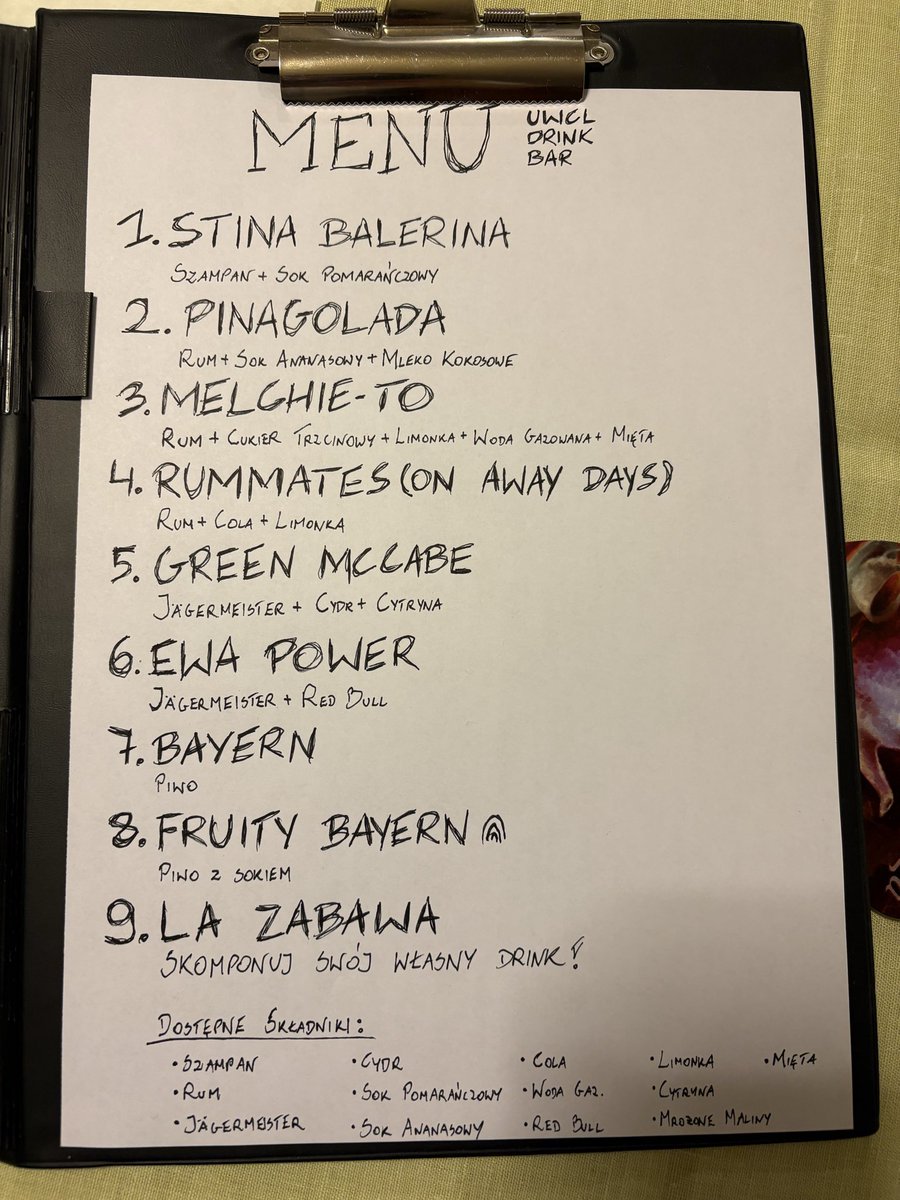 MENU
UWCL
DRINK
BAR
1. STINA BALERINA
SZAMPAN + SOK POMARAŃCZOWY
2. PINAGOLADA
RUM + SOK ANANASOWY + MLEKO KOKOSOWE
3. MELCHIE-TO
RUM + CUKIER TRZCINOWY + LIMONKA + WODA GAZOWANA + MIĘTA
4. RUMMATES (ON AWAY DAYS)
RUM + COLA + LIMONKA
5. GREEN MCCABE
JÄGERMEISTER + CYDR + CYTRYNA
6. EWA POWER
JÄGERMEISTER + RED BULL
7. BAYERN
PIWO
8. FRUITY BAYERN
PIWO Z SOKIEM
9. LA ZABAWA
SKOMPONUJ SWÓJ WŁASNY DRINK!
DOSTĘPNE SKŁADNIKI:
• SZAMPAN • CYDR • COLA • LIMONKA • MIĘTA
• RUM • SOK POMARAŃCZOWY • WODA GAZ. • CYTRYNA
• JÄGERMEISTER • SOK ANANASOWY • RED BULL • MROŻONE MALINY